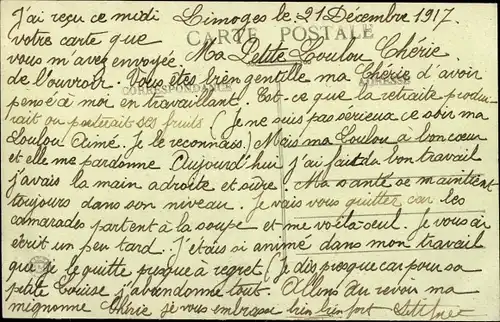 J'ai reçu ce midi Limoges le 21 Décembre 1917.
CARTE POSTALE
votre carte que Ma Petite Loulou Chérie.
vous m'avez envoyée.
de l'ouvroir. Vous êtes bien gentille ma Chérie d'avoir
CORRESPONDANCE ADRESSE
pensé à moi en travaillant. Est-ce que la retraite produi-
rait ou porterait des fruits (Je ne suis pas serieux ce soir ma
Loulou Aimé. Je le reconnais.) Mais ma Loulou à bon cœur
et elle me pardonne Aujourd'hui j'ai fait du bon travail
j'avais la main adroite et sûre. Ma santé se maintient
toujours dans son niveau. Je vais vous quitter car les
camarades partent à la soupe et me voilà seul. Je vous ai
écrit un peu tard. J'étais si animé dans mon travail
que je le quitte presque à regret (Je dis presque car pour sa
petite Louise j'abandonne tout. Allons au revoir ma
mignonne Chérie je vous embrasse bien bien fort